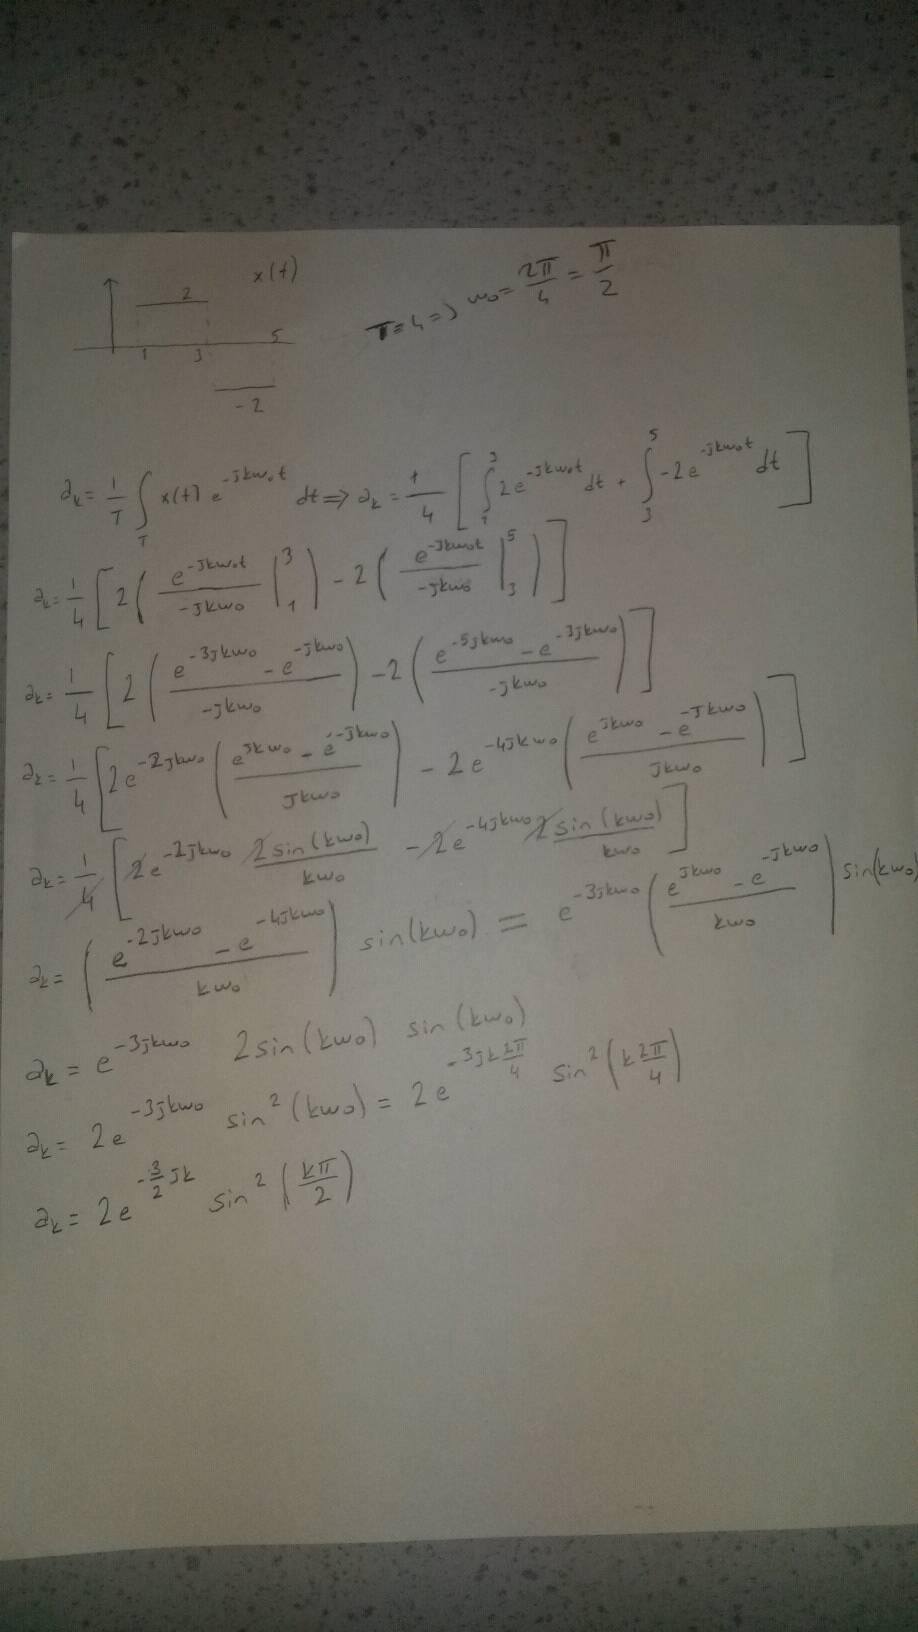 x(t)
2
1 3 5
-2
T=4 => w₀ = 2π/4 = π/2
a_k = 1/T ∫_T x(t) e^{-jkw₀t} dt => a_k = 1/4 [ ∫_1^3 2e^{-jkw₀t} dt + ∫_3^5 -2e^{-jkw₀t} dt ]
a_k = 1/4 [ 2 ( e^{-jkw₀t} / -jkw₀ |_1^3 ) - 2 ( e^{-jkw₀t} / -jkw₀ |_3^5 ) ]
a_k = 1/4 [ 2 ( (e^{-3jkw₀} - e^{-jkw₀}) / -jkw₀ ) - 2 ( (e^{-5jkw₀} - e^{-3jkw₀}) / -jkw₀ ) ]
a_k = 1/4 [ 2e^{-2jkw₀} ( (e^{jkw₀} - e^{-jkw₀}) / jkw₀ ) - 2e^{-4jkw₀} ( (e^{jkw₀} - e^{-jkw₀}) / jkw₀ ) ]
a_k = 1/4 [ 2e^{-2jkw₀} 2sin(kw₀) / kw₀ - 2e^{-4jkw₀} 2sin(kw₀) / kw₀ ]
a_k = ( (e^{-2jkw₀} - e^{-4jkw₀}) / kw₀ ) sin(kw₀) = e^{-3jkw₀} ( (e^{jkw₀} - e^{-jkw₀}) / kw₀ ) sin(kw₀)
a_k = e^{-3jkw₀} 2sin(kw₀) sin(kw₀)
a_k = 2e^{-3jkw₀} sin²(kw₀) = 2e^{-3jk 2π/4} sin²(k 2π/4)
a_k = 2e^{-3/2 jk} sin²(kπ/2)